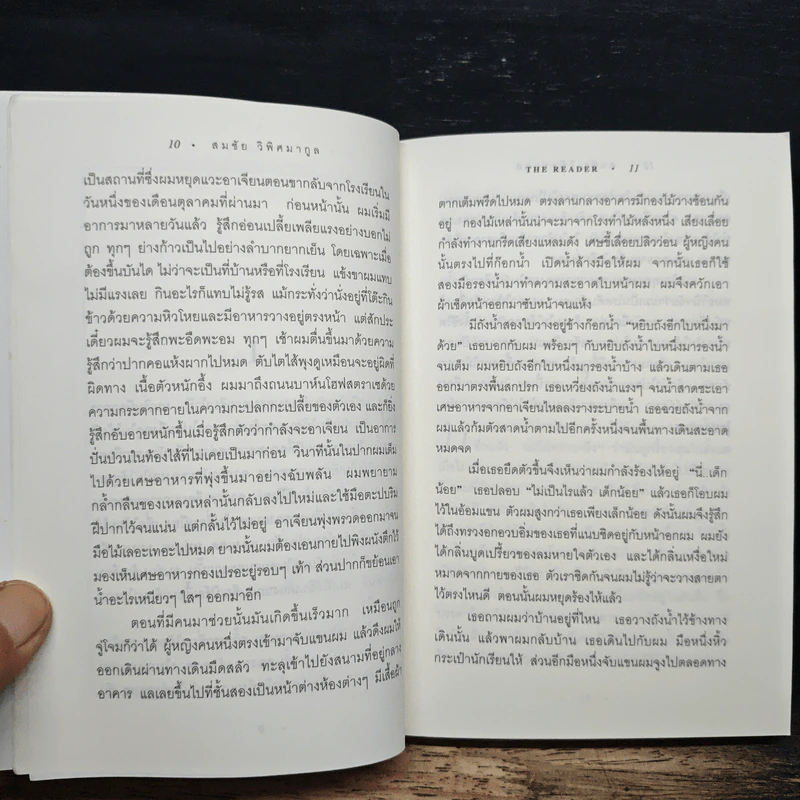 10 • สมชัย วิพิศมากูล
เป็นสถานที่ซึ่งผมหยุดแวะอาเจียนตอนขากลับจากโรงเรียนใน
วันหนึ่งของเดือนตุลาคมที่ผ่านมา ก่อนหน้านั้น ผมเริ่มมี
อาการมาหลายวันแล้ว รู้สึกอ่อนเปลี้ยเพลียแรงอย่างบอกไม่
ถูก ทุกๆ ย่างก้าวเป็นไปอย่างลำบากยากเย็น โดยเฉพาะเมื่อ
ต้องขึ้นบันได ไม่ว่าจะเป็นที่บ้านหรือที่โรงเรียน แข้งขาผมแทบ
ไม่มีแรงเลย กินอะไรก็แทบไม่รู้รส แม้กระทั่งว่านั่งอยู่ที่โต๊ะกิน
ข้าวด้วยความหิวโหยและมีอาหารวางอยู่ตรงหน้า แต่สักประ
เดี๋ยวผมจะรู้สึกพะอืดพะอม ทุกๆ เช้าผมตื่นขึ้นมาด้วยความ
รู้สึกว่าปากคอแห้งผากไปหมด ตับไตไส้พุงดูเหมือนจะอยู่ผิดที่
ผิดทาง เนื้อตัวหนักอึ้ง ผมมาถึงถนนบาห์นโฮฟสตราเซด้วย
ความกระดากอายในความกะปลกกะเปลี้ยของตัวเอง และก็ยิ่ง
รู้สึกอับอายหนักขึ้นเมื่อรู้สึกตัวว่ากำลังจะอาเจียน เป็นอาการ
ปั่นป่วนในท้องไส้ที่ไม่เคยเป็นมาก่อน วินาทีนั้นในปากผมเต็ม
ไปด้วยเศษอาหารที่พุ่งขึ้นมาอย่างฉับพลัน ผมพยายาม
กล้ำกลืนของเหลวเหล่านั้นกลับลงไปใหม่และใช้มือตะปบริม
ฝีปากไว้จนแน่น แต่กลั้นไว้ไม่อยู่ อาเจียนพุ่งพรวดออกมาจน
มือไม้เลอะเทอะไปหมด ยามนั้นผมต้องเอนกายไปพิงผนังตึกไว้
มองเห็นเศษอาหารกองเปรอะอยู่รอบๆ เท้า ส่วนปากก็ขย้อนเอา
น้ำอะไรเหนียวๆ ใสๆ ออกมาอีก
ตอนที่มีคนมาช่วยนั้นมันเกิดขึ้นเร็วมาก เหมือนถูก
จู่โจมก็ว่าได้ ผู้หญิงคนหนึ่งตรงเข้ามาจับแขนผม แล้วดึงผมให้
ออกเดินผ่านทางเดินมืดสลัว ทะลุเข้าไปยังสนามที่อยู่กลาง
อาคาร แลเลยขึ้นไปที่ชั้นสองเป็นหน้าต่างห้องต่างๆ มีเสื้อผ้า
THE READER • 11
ตากเต็มพรืดไปหมด ตรงลานกลางอาคารมีกองไม้วางซ้อนกัน
อยู่ กองไม้เหล่านั้นน่าจะมาจากโรงทำไม้หลังหนึ่ง เสียงเลื่อย
กำลังทำงานกรีดเสียงแหลมดัง เศษขี้เลื่อยปลิวว่อน ผู้หญิงคน
นั้นตรงไปที่ก๊อกน้ำ เปิดน้ำล้างมือให้ผม จากนั้นเธอก็ใช้
สองมือรองน้ำมาทำความสะอาดใบหน้าผม ผมจึงควักเอา
ผ้าเช็ดหน้าออกมาซับหน้าจนแห้ง
มีถังน้ำสองใบวางอยู่ข้างก๊อกน้ำ “หยิบถังอีกใบหนึ่งมา
ด้วย” เธอบอกกับผม พร้อมๆ กับหยิบถังน้ำใบหนึ่งมารองน้ำ
จนเต็ม ผมหยิบถังอีกใบหนึ่งมารองน้ำบ้าง แล้วเดินตามเธอ
ออกมาตรงพื้นสกปรก เธอเหวี่ยงถังน้ำแรงๆ จนน้ำสาดชะเอา
เศษอาหารจากอาเจียนไหลลงรางระบายน้ำ เธอฉวยถังน้ำจาก
ผมแล้วก้มตัวสาดน้ำตามไปอีกครั้งหนึ่งจนพื้นทางเดินสะอาด
หมดจด
เมื่อเธอยืดตัวขึ้นจึงเห็นว่าผมกำลังร้องไห้อยู่ “นี่..เด็ก
น้อย” เธอปลอบ “ไม่เป็นไรแล้ว เด็กน้อย” แล้วเธอก็โอบผม
ไว้ในอ้อมแขน ตัวผมสูงกว่าเธอเพียงเล็กน้อย ดังนั้นผมจึงรู้สึก
ได้ถึงทรวงอกอวบอิ่มของเธอที่แนบชิดอยู่กับหน้าอกผม ผมยัง
ได้กลิ่นบูดเปรี้ยวของลมหายใจตัวเอง และได้กลิ่นเหงื่อใหม่
หมาดจากกายของเธอ ตัวเราชิดกันจนผมไม่รู้ว่าจะวางสายตา
ไว้ตรงไหนดี ตอนนั้นผมหยุดร้องไห้แล้ว
เธอถามผมว่าบ้านอยู่ที่ไหน เธอวางถังน้ำไว้ข้างทาง
เดินนั้น แล้วพาผมกลับบ้าน เธอเดินไปกับผม มือหนึ่งหิ้ว
กระเป๋านักเรียนให้ ส่วนอีกมือหนึ่งจับแขนผมจูงไปตลอดทาง